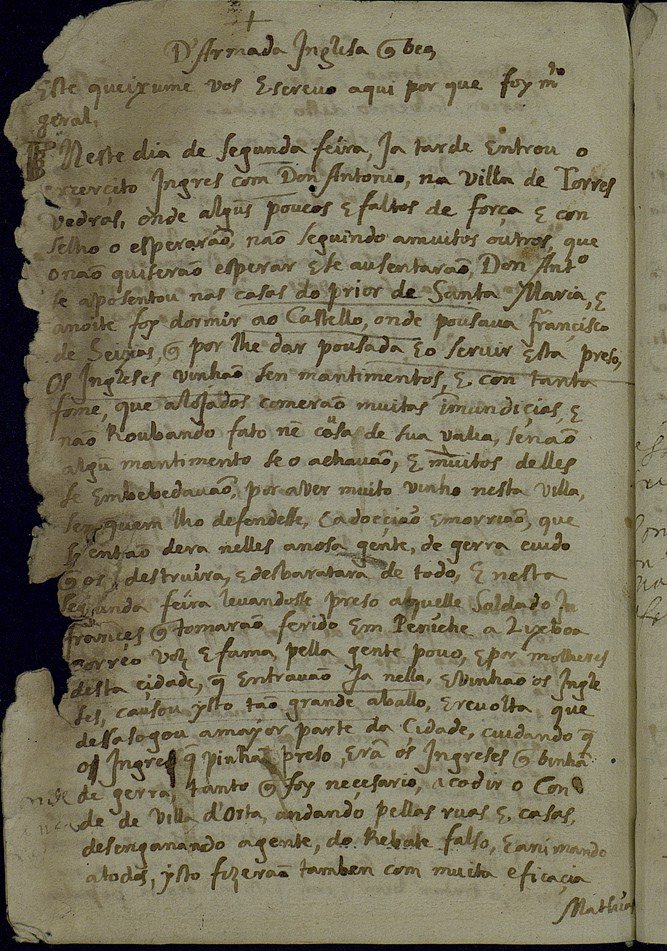 D'Armada Inglesa
Este queixume vos Escrevo aqui por que foy m.to
geral.
Neste dia de segunda feira, Ja tarde Entrou o
exercito Ingres com Don Antonio, na villa de Torres
Vedras, onde algũs poucos E faltos de força E con
selho o esperarão, não seguindo amuitos outros, que
o não quiserão esperar E se ausentarão, Don Ant.o
se aposentou nas casas do prior de Santa Maria, E
anoite foy dormir ao Castello, onde pousava francisco
de por lhe dar pousada E o servir Esta preso,
Os Ingleses vinhão sen mantimentos, E con tanta
fome, que alojados comerão muitas Immundicias, E
não Roubando fato nẽ cousas de sua valia, senão
algũ mantimento se o achavão, E muitos delles
se Embebedavão, por aver muito vinho nesta villa,
sen quem lho defendesse, E adoecião E morrião, que
se então dera nelles a nosa gente, de gerra cuido
os destruira, E desbaratara de todo, E nesta
segunda feira levandosse preso aquelle Soldado In
frances q tomarão ferido Em Peniche a Lixboa
correo voz E fama, pella gente pouo, E por molheres
desta cidade, q̃ Entravão Ja nella, E vinhão os Ingle
ses, causou ysto tão grande aballo, E revolta que
desasogou a mayor parte da Cidade, cuidando q̃
os Ingreses q̃ vinhão preso, Erã os Ingreses q binhã
de gerra, tanto q foy necesario, acodir o Con
de de Villa d'Orta, andando pellas ruas E casas,
desenganando agente, do Rebate falso, E animando
atodos, ysto fizerão tambem com muita eficaçia
Mathias